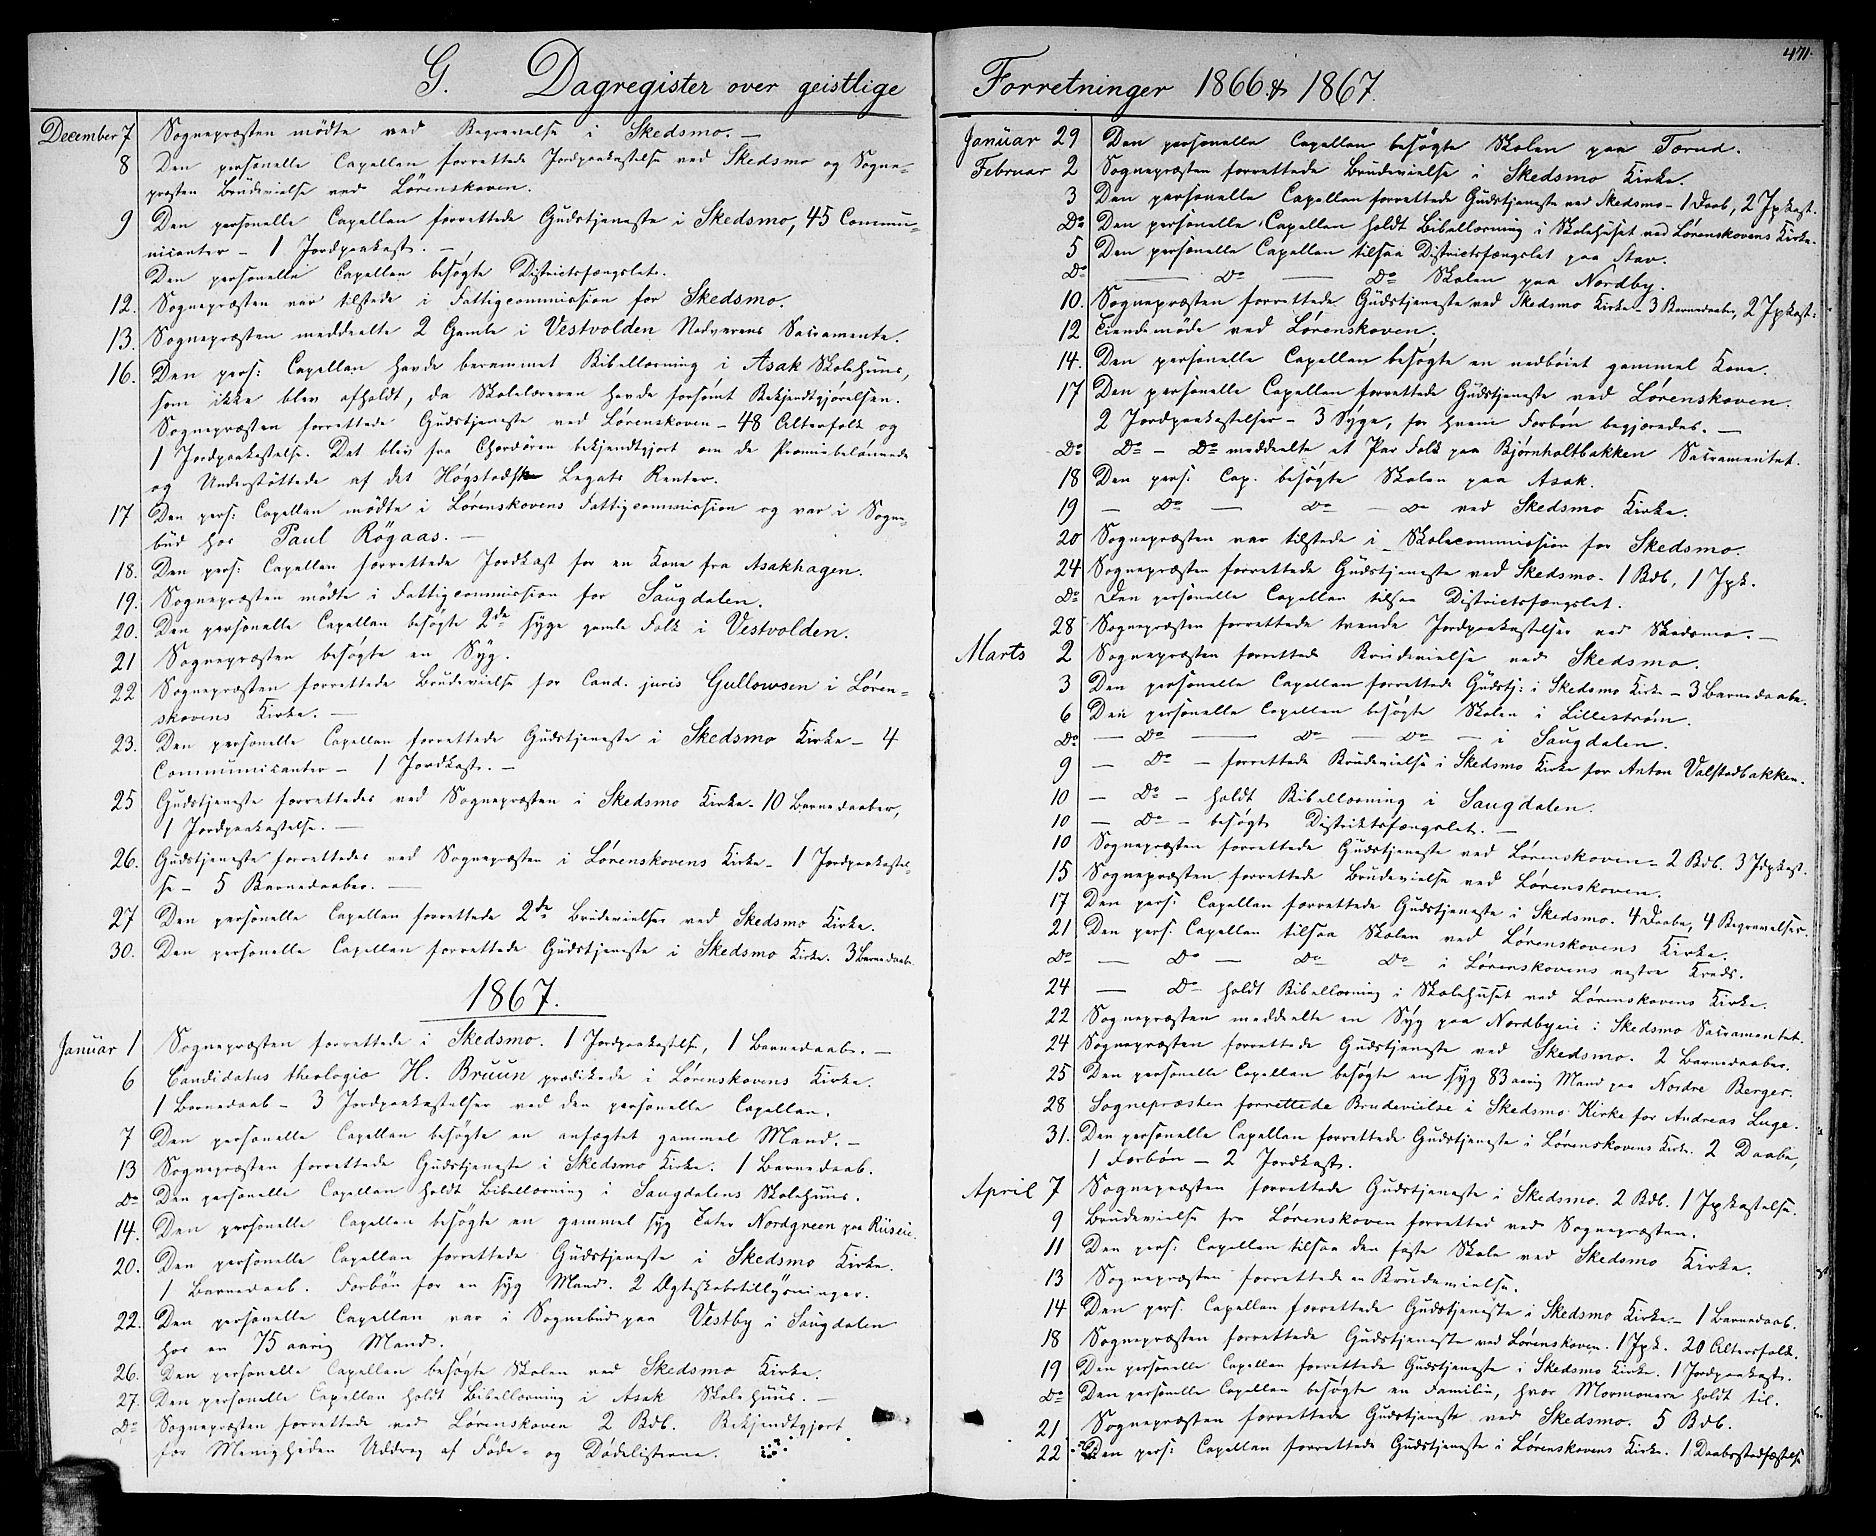 G. Dagregister over geistlige
December 7 Sognepræsten mödte ved Begravelse i Skedsmo. —
8 Den personelle Capellan forrettede Jordpaakastelse ved Skedsmo og Sogne-
præsten Brudevielse ved Lörenskoven.
9 Den personelle Capellan forrettede Gudstjeneste i Skedsmo, 45 Commu-
nicanter – 1 Jordpaakast. —
Den personelle Capellan besögte Districtsfængslet.
12. Sognepræsten var tilstede i Fattigcommission for Skedsmo.
13. Sognepræsten meddeelte 2 Gamle i Vestvolden Nadverens Sacramente.
16. Den pers: Capellan havde berammet Bibellæsning i Asak Skolehuus,
som ikke blev afholdt, da Skolelæreren havde forsömt Bekjendtgjörelsen.
Sognepræsten forrettede Gudstjeneste ved Lørenskoven – 48 Alterfolk og
1 Jordpaakastelse. Det blev fra Chordören bekjendtgjort om de Præmiebelönnede
og Understöttede af det Högstadske Legats Renter.
17 Den pers: Capellan mödte i Lörenskovens Fattigcommission og var i Sogne-
bud hos Paul Rögaas. —
18. Den pers: Capellan forrettede Jordkast for en Kone fra Asakhagen.
19. Sognepræsten mödte i Fattigcommission for Saugdalen.
20. Den personelle Capellan besögte 2de syge gamle Folk i Vestvolden.
21 Sognepræsten besögte en Syg.
22 Sognepræsten forrettede Brudevielse for Cand. juris Gullowsen i Lören-
skovens Kirke. —
23. Den personelle Capellan forrettede Gudstjeneste i Skedsmo Kirke – 4
Communicanter – 1 Jordkast. —
25 Gudstjeneste forrettedes ved Sognepræsten i Skedsmo Kirke – 10 Barnedaaber,
1 Jordpaakastelse. —
26. Gudstjeneste forrettedes ved Sognepræsten i Lørenskovens Kirke – 1 Jordpaakastel-
se – 5 Barnedaaber. —
27 Den personelle Capellan forrettede 2de Brudevielser ved Skedsmo Kirke.
30. Den personelle Capellan forrettede Gudstjeneste i Skedsmo Kirke. 3 Barnedaabe
1867.
Januar 1 Sognepræsten forrettede i Skedsmo. 1 Jordpaakastelse, 1 Barnedaab. —
6 Candidatus theologiæ H. Bruun prædikede i Lörenskovens Kirke.
1 Barnedaab – 3 Jordpaakastelser ved den personelle Capellan.
7 Den personelle Capellan besögte en anfægtet gammel Mand. —
13 Sognepræsten forrettede Gudstjeneste i Skedsmo Kirke. 1 Barnedaab.
Do Den personelle Capellan holdt Bibellæsning i Saugdalens Skolehuus.
14. Den personelle Capellan besögte en gammel syg Nordgreen paa Riiseie.
20. Den personelle Capellan forrettede Gudstjeneste i Skedsmo Kirke.
1 Barnedaab. Forbön for en syg Mand. 2 Ægteskabstillysninger.
22. Den personelle Capellan var i Sognebud paa Vestby i Saugdalen
hos en 75 aarig Mand.
26. Den personelle Capellan besögte Skolen ved Skedsmo Kirke.
27. Den personelle Capellan holdt Bibellæsning i Asak Skolehuus. —
Do Sognepræsten forrettede ved Lörenskoven 2 Bdb. Bekjendtgjort
for Menigheden Uddrag af Föde- og Dödelisterne.
Forretninger 1866 & 1867.
471.
Januar 29 Den personelle Capellan besögte Skolen paa Torud.
Februar 2 Sognepræsten forrettede Brudevielse i Skedsmo Kirke.
3 Den personelle Capellan forrettede Gudstjeneste ved Skedsmo – 1 Daab, 2 Jpkast.
Do Den personelle Capellan holdt Bibellæsning i Skolehuset ved Lörenskovens Kirke.
5 Den personelle Capellan tilsaa Districtsfængslet paa Stav.
Do — Do — Do Skolen paa Nordby.
10. Sognepræsten forrettede Gudstjeneste ved Skedsmo Kirke – 3 Barnedaaber, 2 Jpkast:
12 Tiendemöde ved Lörenskoven.
14. Den personelle Capellan besögte en nedböiet gammel Kone.
17 Den personelle Capellan forrettede Gudstjeneste ved Lörenskoven.
2 Jordpaakastelser – 3 Syge, for hvem Forbön begjæredes. —
Do Do – Do meddeelte et Par Folk paa Bjørnholtbakken Sacramentet.
18 Den pers: Cap. besögte Skolen paa Asak.
19 — Do — Do — Do ved Skedsmo Kirke.
20 Sognepræsten var tilstede i Skolecommission for Skedsmo.
24 Sognepræsten forrettede Gudstjeneste ved Skedsmo. 1 Bdb, 1 Jpk.
Do Den personelle Capellan tilsaa Districtsfængslet.
28 Sognepræsten forrettede trende Jordpaakastelser ved Skedsmo. —
Marts 2 Sognepræsten forrettede Brudevielse ved Skedsmo.
3 Den personelle Capellan forrettede Gudstj: i Skedsmo Kirke – 3 Barnedaabe.
6 Den personelle Capellan besögte Skolen i Lillestrøm.
Do — Do — Do — Do — i Saugdalen.
9 — Do — forrettede Brudevielse i Skedsmo Kirke for Anton Valstadbakken.
10 — Do — holdt Bibellæsning i Saugdalen.
10 — Do — besögte Distriktsfængslet. —
10 Sognepræsten forrettede Gudstjeneste ved Lörenskoven – 2 Bdb. 3 Jdpkast.
15 Sognepræsten forrettede Brudevielse ved Lörenskoven.
17 Den pers: Capellan forrettede Gudstjeneste i Skedsmo. 4 Daabe, 4 Begravelser.
21 Den pers: Capellan tilsaa Skolen ved Lörenskovens Kirke.
Do — Do — Do Do i Lörenskovens vestre Kreds.
24 — Do holdt Bibellæsning i Skolehuset ved Lörenskovens Kirke.
22 Sognepræsten meddeelte en Syg paa Nordbyeie i Skedsmo Sacramentet.
24 Sognepræsten forrettede Gudstjeneste ved Skedsmo. 2 Barnedaaber.
25 Den personelle Capellan besögte en syg 83 aarig Mand paa Nordre Berger.
28 Sognepræsten forrettede Brudevielse i Skedsmo Kirke for Andreas Luge.
31. Den personelle Capellan forrettede Gudstjeneste i Lörenskovens Kirke. 2 Daabe,
1 Forbön – 2 Jordkast.
April 7 Sognepræsten forrettede Gudstjeneste i Skedsmo. 2 Bdb. 1 Jpkastelse.
9 Brudevielse fra Lörenskoven forretted ved Sognepræsten.
11 Den pers: Capellan tilsaa den faste Skole ved Skedsmo Kirke.
13 Sognepræsten forrettede en Brudevielse.
14 Den pers: Capellan forrettede Gudstjeneste i Skedsmo Kirke. – 1 Barnedaab.
18 Sognepræsten forrettede Gudstjeneste ved Lörenskoven. 1 Jpk. 20 Altersfolk.
19 Den personelle Capellan forrettede Gudstjeneste i Skedsmo Kirke. 1 Jordpaakast.
Do Den personelle Capellan besögte en Familie, hvor Mormonere holdt til.
21 Sognepræsten forrettede Gudstjeneste ved Skedsmo. 5 Bdb.
22 Den pers: Capellan forrettede Gudstjeneste i Lörenskovens Kirke. 1 Daabsstadfæstelse